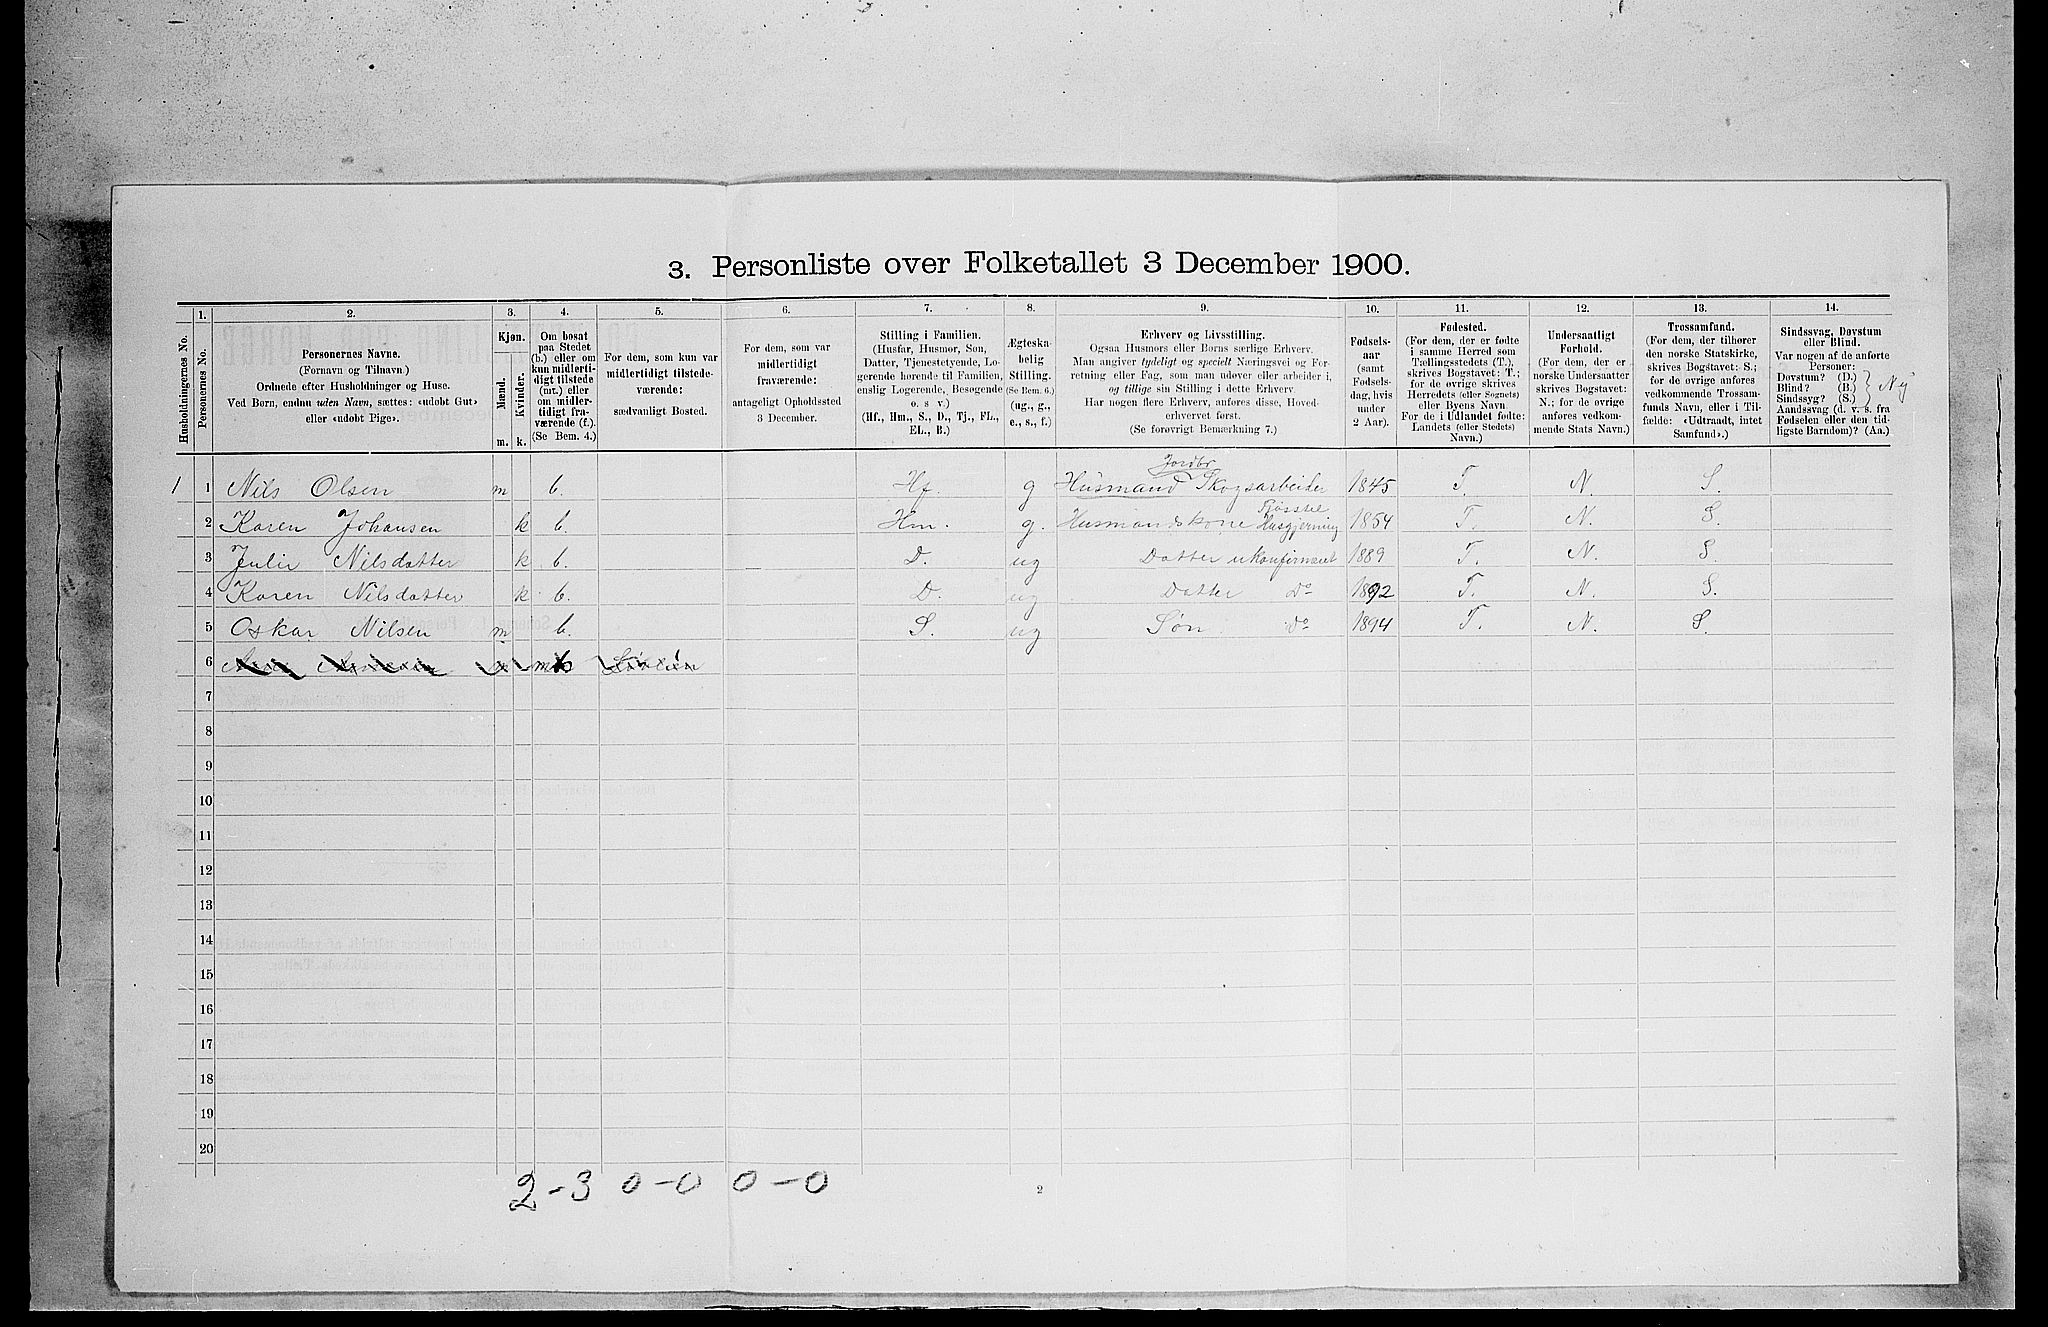 3. Personliste over Folketallet 3 December 1900.
1. 2. 3. 4. 5. 6. 7. 8. 9. 10. 11. 12. 13. 14.
Husholdningernes No.
Personernes No.
Personernes Navne.
(Fornavn og Tilnavn.)
Ordnede efter Husholdninger og Huse.
Ved Børn, endnu uden Navn, sættes: «udobt Gut»
eller «udobt Pige».
Kjøn.
Mænd.
Kvinder.
m. k.
Om bosat
paa Stedet
(b.) eller om
kun midlerti-
digt tilstede
(mt.) eller
om midler-
tidigt fra-
værende (f.).
(Se Bem. 4.)
For dem, som kun var
midlertidigt tilstede-
værende:
sædvanligt Bosted.
For dem, som var
midlertidigt
fraværende:
antageligt Opholdssted
3 December.
Stilling i Familien.
(Husfar, Husmor, Søn,
Datter, Tjenestetyende, Lo-
gerende hørende til Familien,
enslig Logerende, Besøgende
o. s. v.)
(Hf., Hm., S., D., Tj., FL.,
EL., B.)
Ægteska-
belig
Stilling.
(Se Bem. 6.)
(ug., g.,
e., s., f.)
Erhverv og Livsstilling.
Ogsaa Husmors eller Børns særlige Erhverv.
Man angiver tydeligt og specielt Næringsvei og For-
retning eller Fag, som man udøver eller arbeider i,
og tillige sin Stilling i dette Erhverv
Har nogen flere Erhverv, anføres disse, Hoved-
erhvervet først.
(Se forøvrigt Bemærkning 7.)
Fødsels-
aar
(samt
Fødsels-
dag, hvis
under
2 Aar).
Fødested.
(For dem, der er fødte
i samme Herred som
Tællingsstedets (T.),
skrives Bogstavet: T.;
for de øvrige skrives
Herredets (eller Sognets)
eller Byens Navn.
For de i Udlandet fødte:
Landets (eller Stedets)
Navn.)
Undersaatligt
Forhold.
(For dem, der er
norske Undersaatter
skrives Bogstavet:
N.; for de øvrige
anføres vedkom-
mende Stats Navn.)
Trossamfund.
(For dem, der tilhører
den norske Statskirke,
skrives Bogstavet: S.;
for de øvrige anføres
vedkommende Trossam-
funds Navn, eller i Til-
fælde: «Udtraadt, intet
Samfund».)
Sindssvag, Døvstum
eller Blind.
Var nogen af de anførte
Personer:
Døvstum? (D.)
Blind? (B.)
Sindssyg? (S.)
Aandssvag (d. v. s. fra
Fødselen eller den tid-
ligste Barndom)? (Aa.)
Nej
Jordbr
1 1 Nils Olsen m b. Hf. g Husmand Skogsarbeider 1845 T. N. S.
2 Karen Johansen k b. Hm. g. Husmandskone Husgjerning 1854 T. N. S.
3 Julie Nilsdatter k b. D. ug Datter ukonfirmeret 1889 T. N. S.
4 Karen Nilsdatter k b. D. ug Datter do 1892 T. N. S.
5 Oskar Nilsen m b. S. ug Søn do 1894 T. N. S.
6
7
8
9
10
11
12
13
14
15
16
17
18
19
20
2-3 0-0 0-0
2